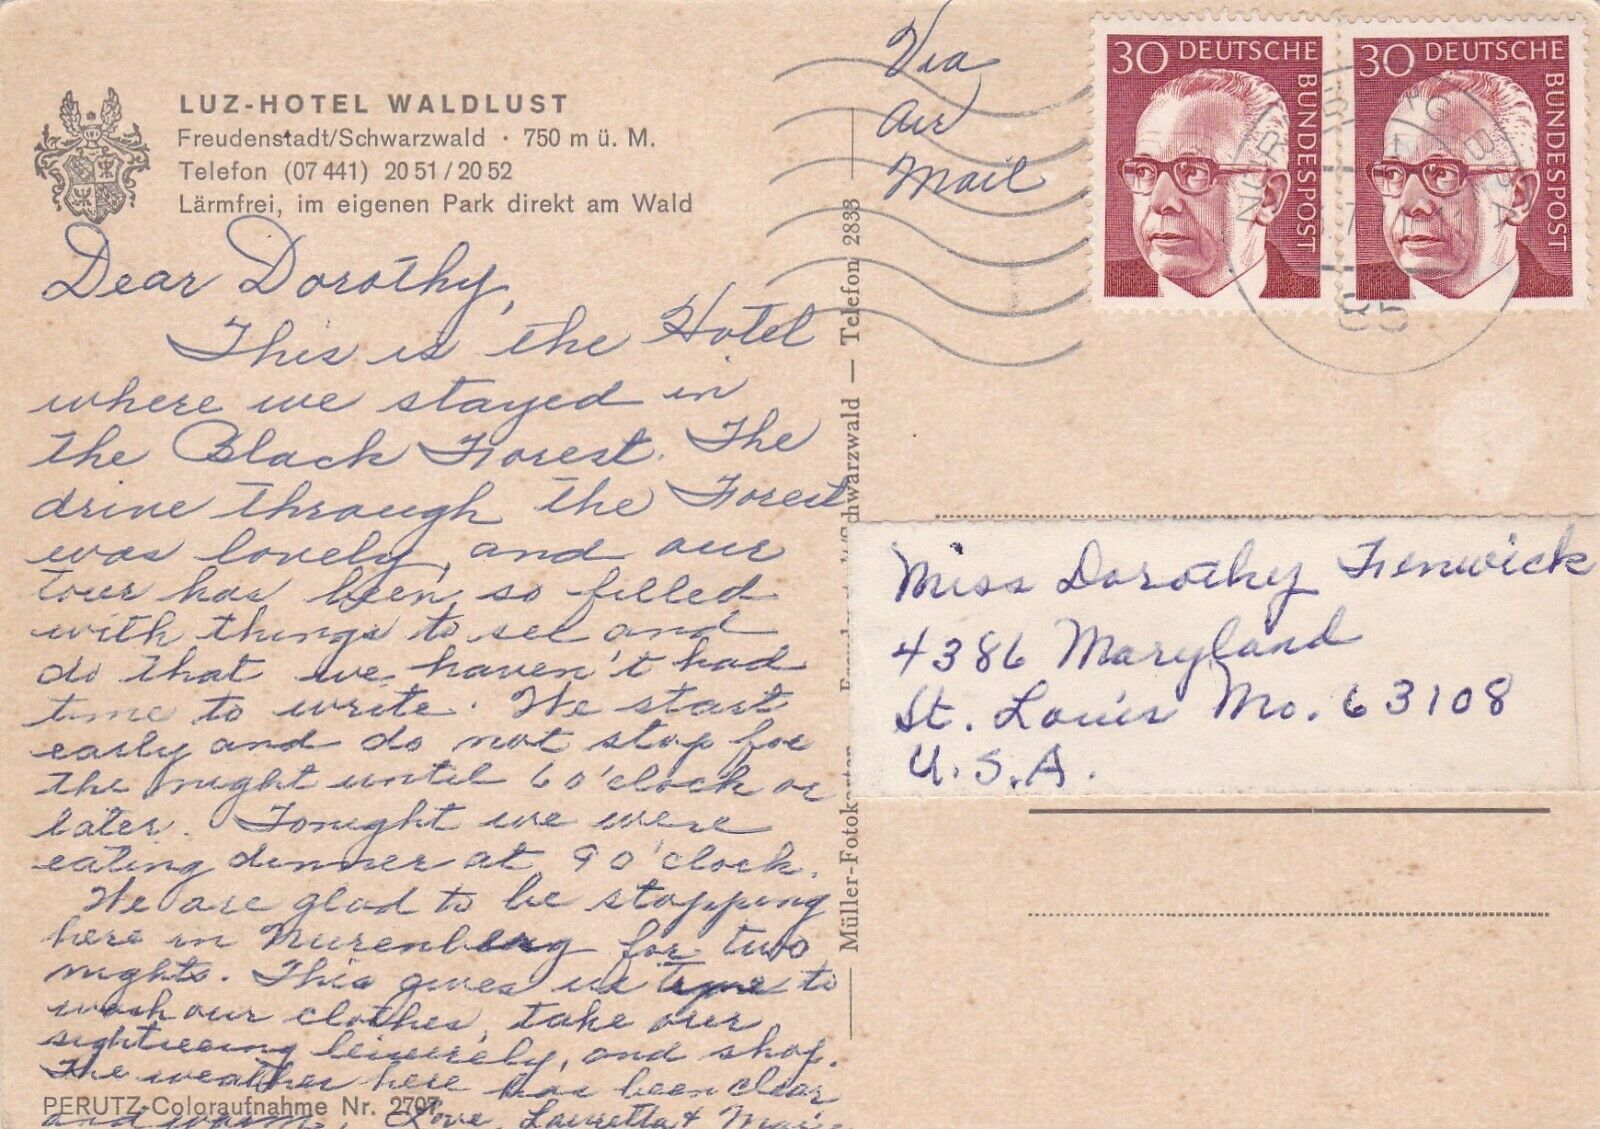 LUZ-HOTEL WALDLUST
Freudenstadt/Schwarzwald · 750 m ü. M.
Telefon (07 441) 20 51 / 20 52
Lärmfrei, im eigenen Park direkt am Wald
Dear Dorothy,
This is the Hotel
where we stayed in
the Black Forest. The
drive through the Forest
was lovely, and our
tour has been so filled
with things to see and
do that we haven't had
time to write. We start
early and do not stop for
the night until 6 o'clock or
later. Tonight we were
eating dinner at 9 o'clock.
We are glad to be stopping
here in Nurenberg for two
nights. This gives us time to
wash our clothes, take our
sightseeing leisurely, and shop.
The weather here has been clear
and warm. Love, Lauretta &
PERUTZ-Coloraufnahme Nr. 2707
Müller-Fotokarten Schwarzwald — Telefon 2838
Via
air
Mail
30 DEUTSCHE
BUNDESPOST
30 DEUTSCHE
BUNDESPOST
85
Miss Dorothy Fenwick
4386 Maryland
St. Louis Mo. 63108
U.S.A.